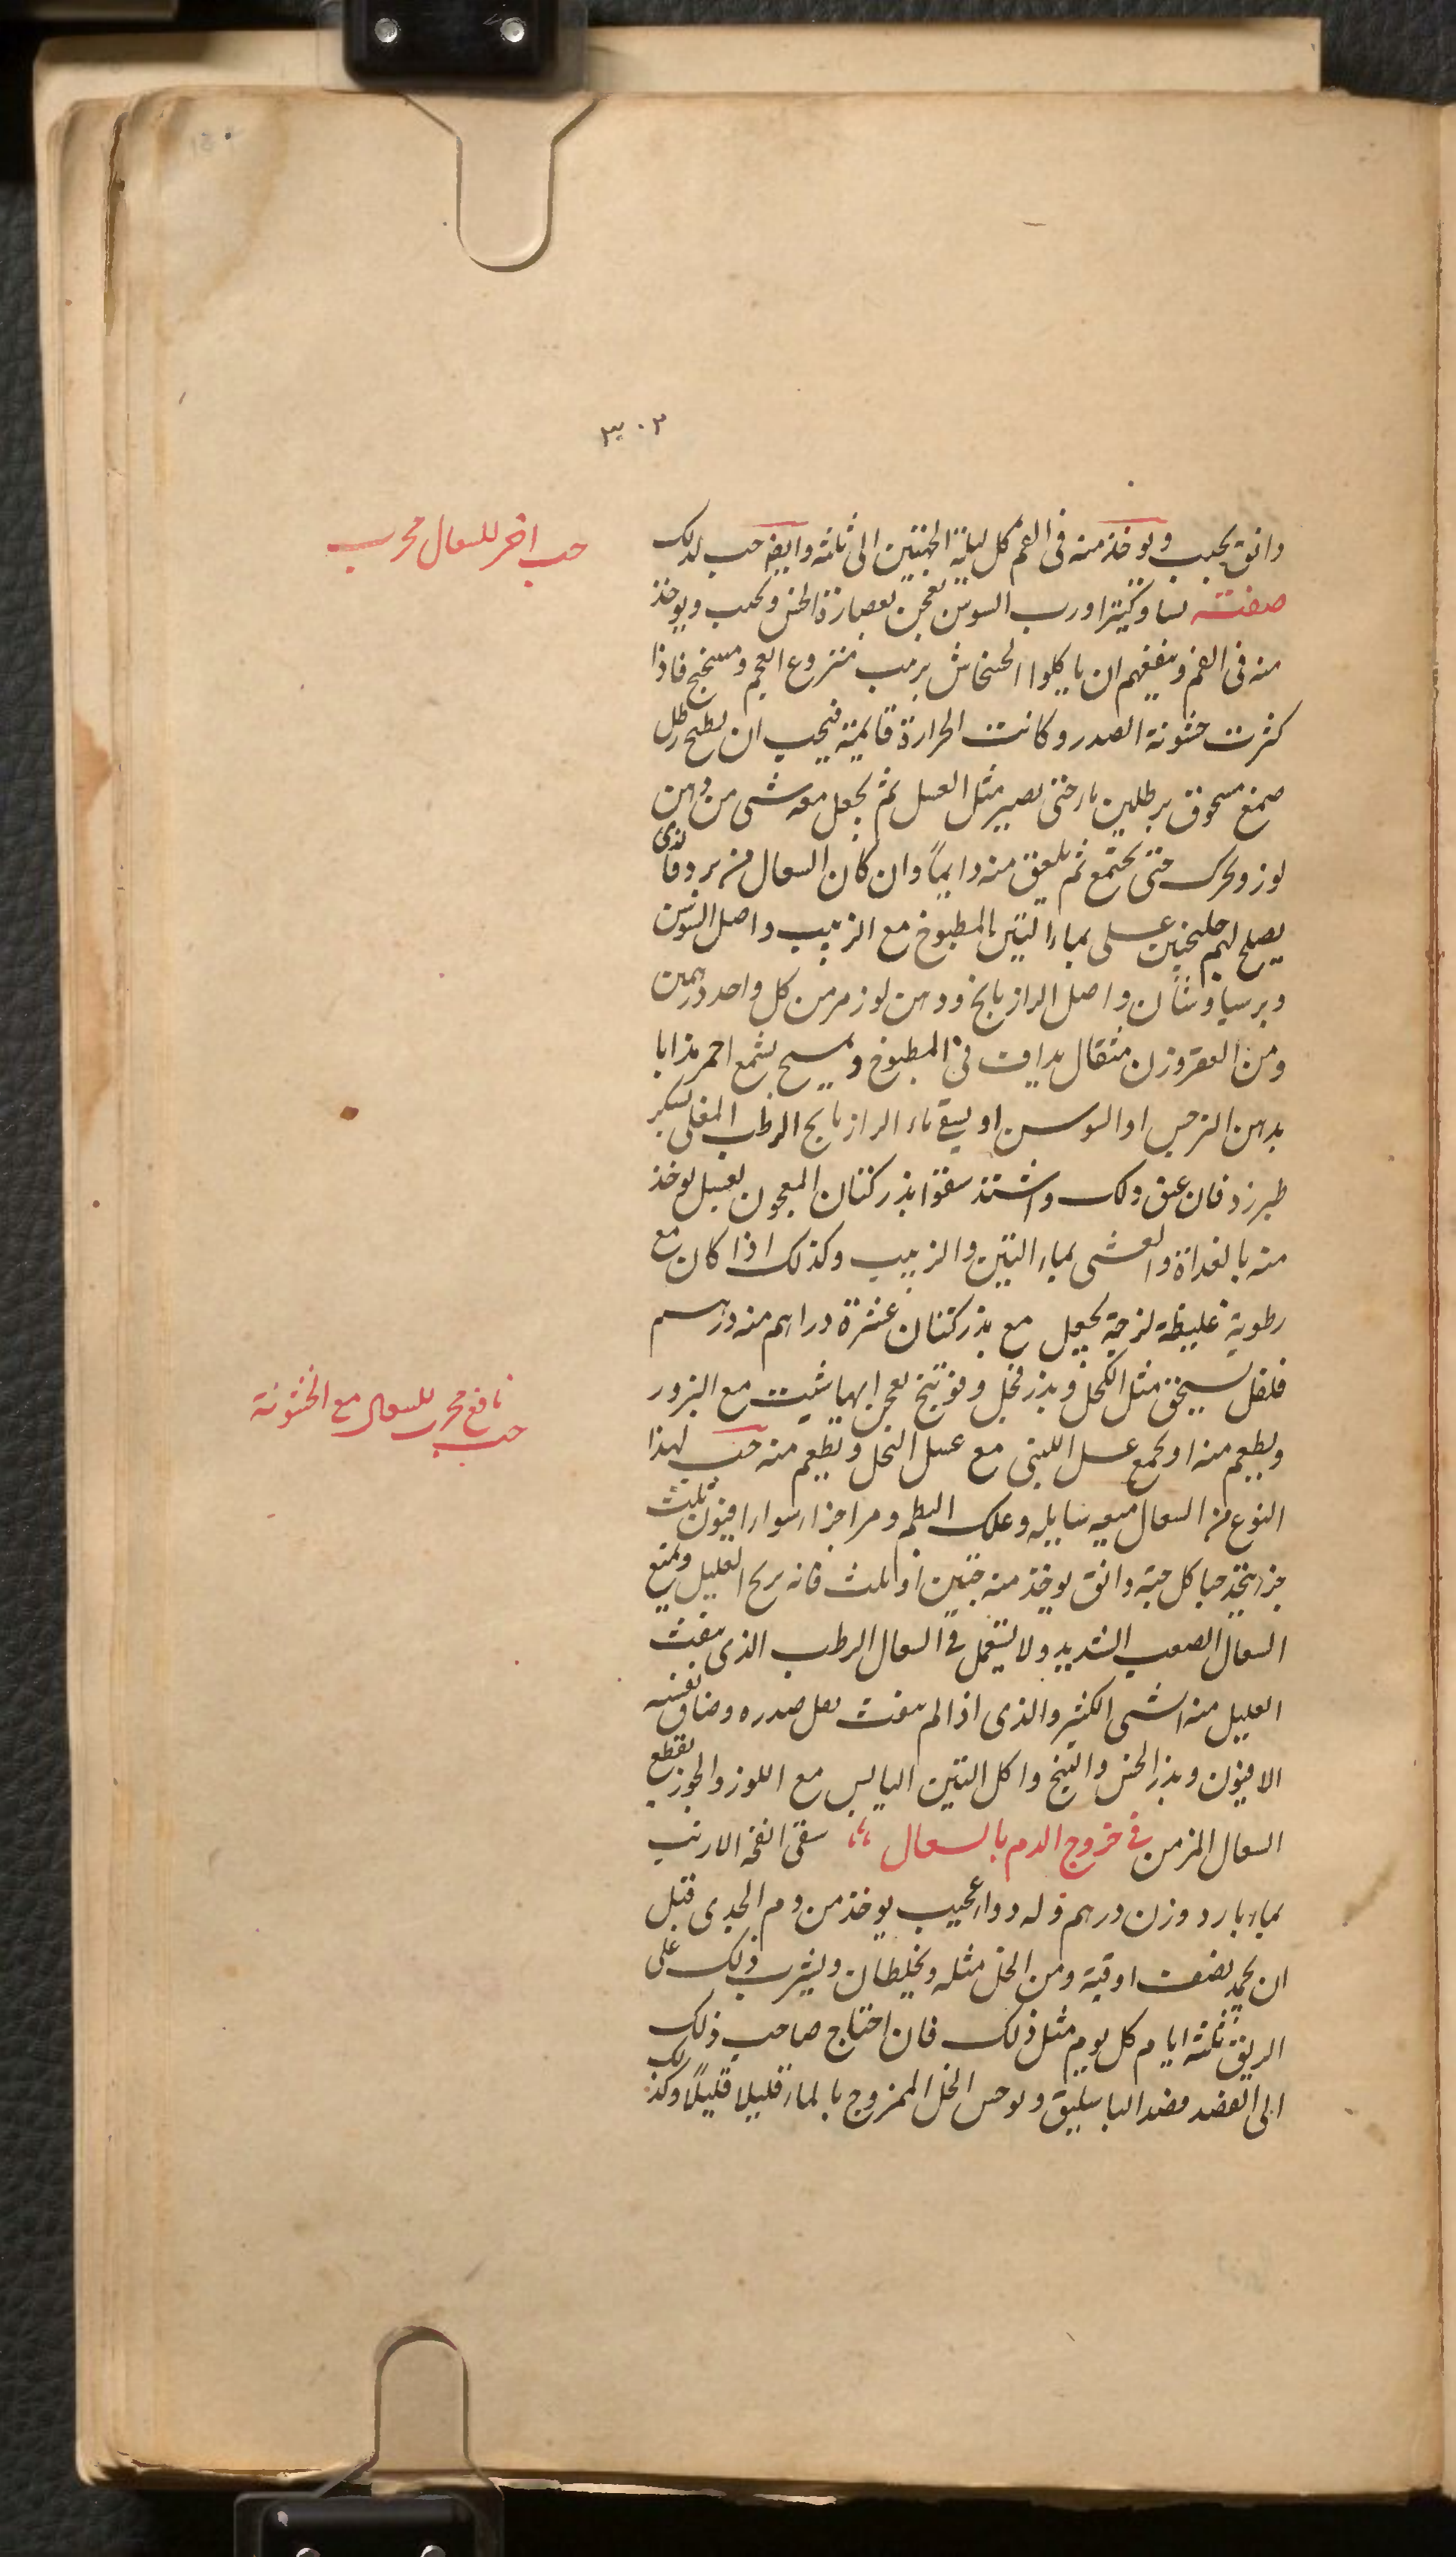 ٣٠٣
دانق يحبب ويوخذ منه فى الفم كل ليلة الحبتين الى ثلثة وايضا حب لذلك
حب اخر للسعال مجرب
صفته نشا وكثيرا ورب السوس يعجن بعصارة الخس ويحبب ويوخذ
منه فى الفم وينفعهم ان ياكلوا الخشخاش بزبيب منزوع العجم ومبختج فاذا
كثرت خشونة الصدر وكانت الحرارة قايمة فيجب ان يطبخ رطل
صمغ مسحوق برطلين ماء حتى يصير مثل العسل ثم يجعل معه شى من دهن
لوز ويحرك حتى يجتمع ثم يلعق منه دايماً وان كان السعال من برد فالذى
يصلح لهم جلنجبين عسلى بماء التين المطبوخ مع الزبيب واصل السوس
وبرسياوشان واصل الرازيانج ودهن لوز مر من كل واحد درهمين
ومن القفر وزن مثقال يداف فى المطبوخ ويمسح بشمع احمر مذابا
بدهن النرجس او السوسن او يسقى ماء الرازيانج الرطب المغلى بسكر
طبرزد فان عتق ذلك واشتد سقوا بذر كتان المعجون بعسل يوخذ
منه بالغداة والعشى بماء التين والزبيب وكذلك اذا كان مع
رطوبة غليظة لزجة يجعل مع بذر كتان عشرة دراهم منه درهم
فلفل يسحق مثل الكحل وبذر فجل وفوتنج يعجن ايها شيت مع البزور
نافع مجرب للسعال مع الخشونة
حب
ويطعم منه او يجمع عسل اللبنى مع عسل النحل ويطعم منه حب لهذا
النوع من السعال ميعه سايله وعلك البطم ومر اجزاء سواء افيون ثلث
جزء يتخذ حبا كل حبة دانق يوخذ منه حبتين او ثلث فانه يريح العليل ويمنع
السعال الصعب الشديد ولا يستعمل فى السعال الرطب الذى ينفث
العليل منه الشى الكثير والذى اذا لم ينفث ثقل صدره وضاق نفسه
الافيون وبذر الخس والبنج واكل التين اليابس مع اللوز والجوز يقطع
السعال المزمن فى خروج الدم بالسعال سقى انفحة الارنب
بماء بارد وزن درهم وله دواء عجيب يوخذ من دم الجدى قبل
ان يجمد نصف اوقية ومن الخل مثله ويخلطان ويشرب ذلك على
الريق ثلثة ايام كل يوم مثل ذلك فان احتاج صاحب ذلك
الى الفصد فصد الباسليق ويوحس الخل الممزوج بالماء قليلا قليلاً وكذلك